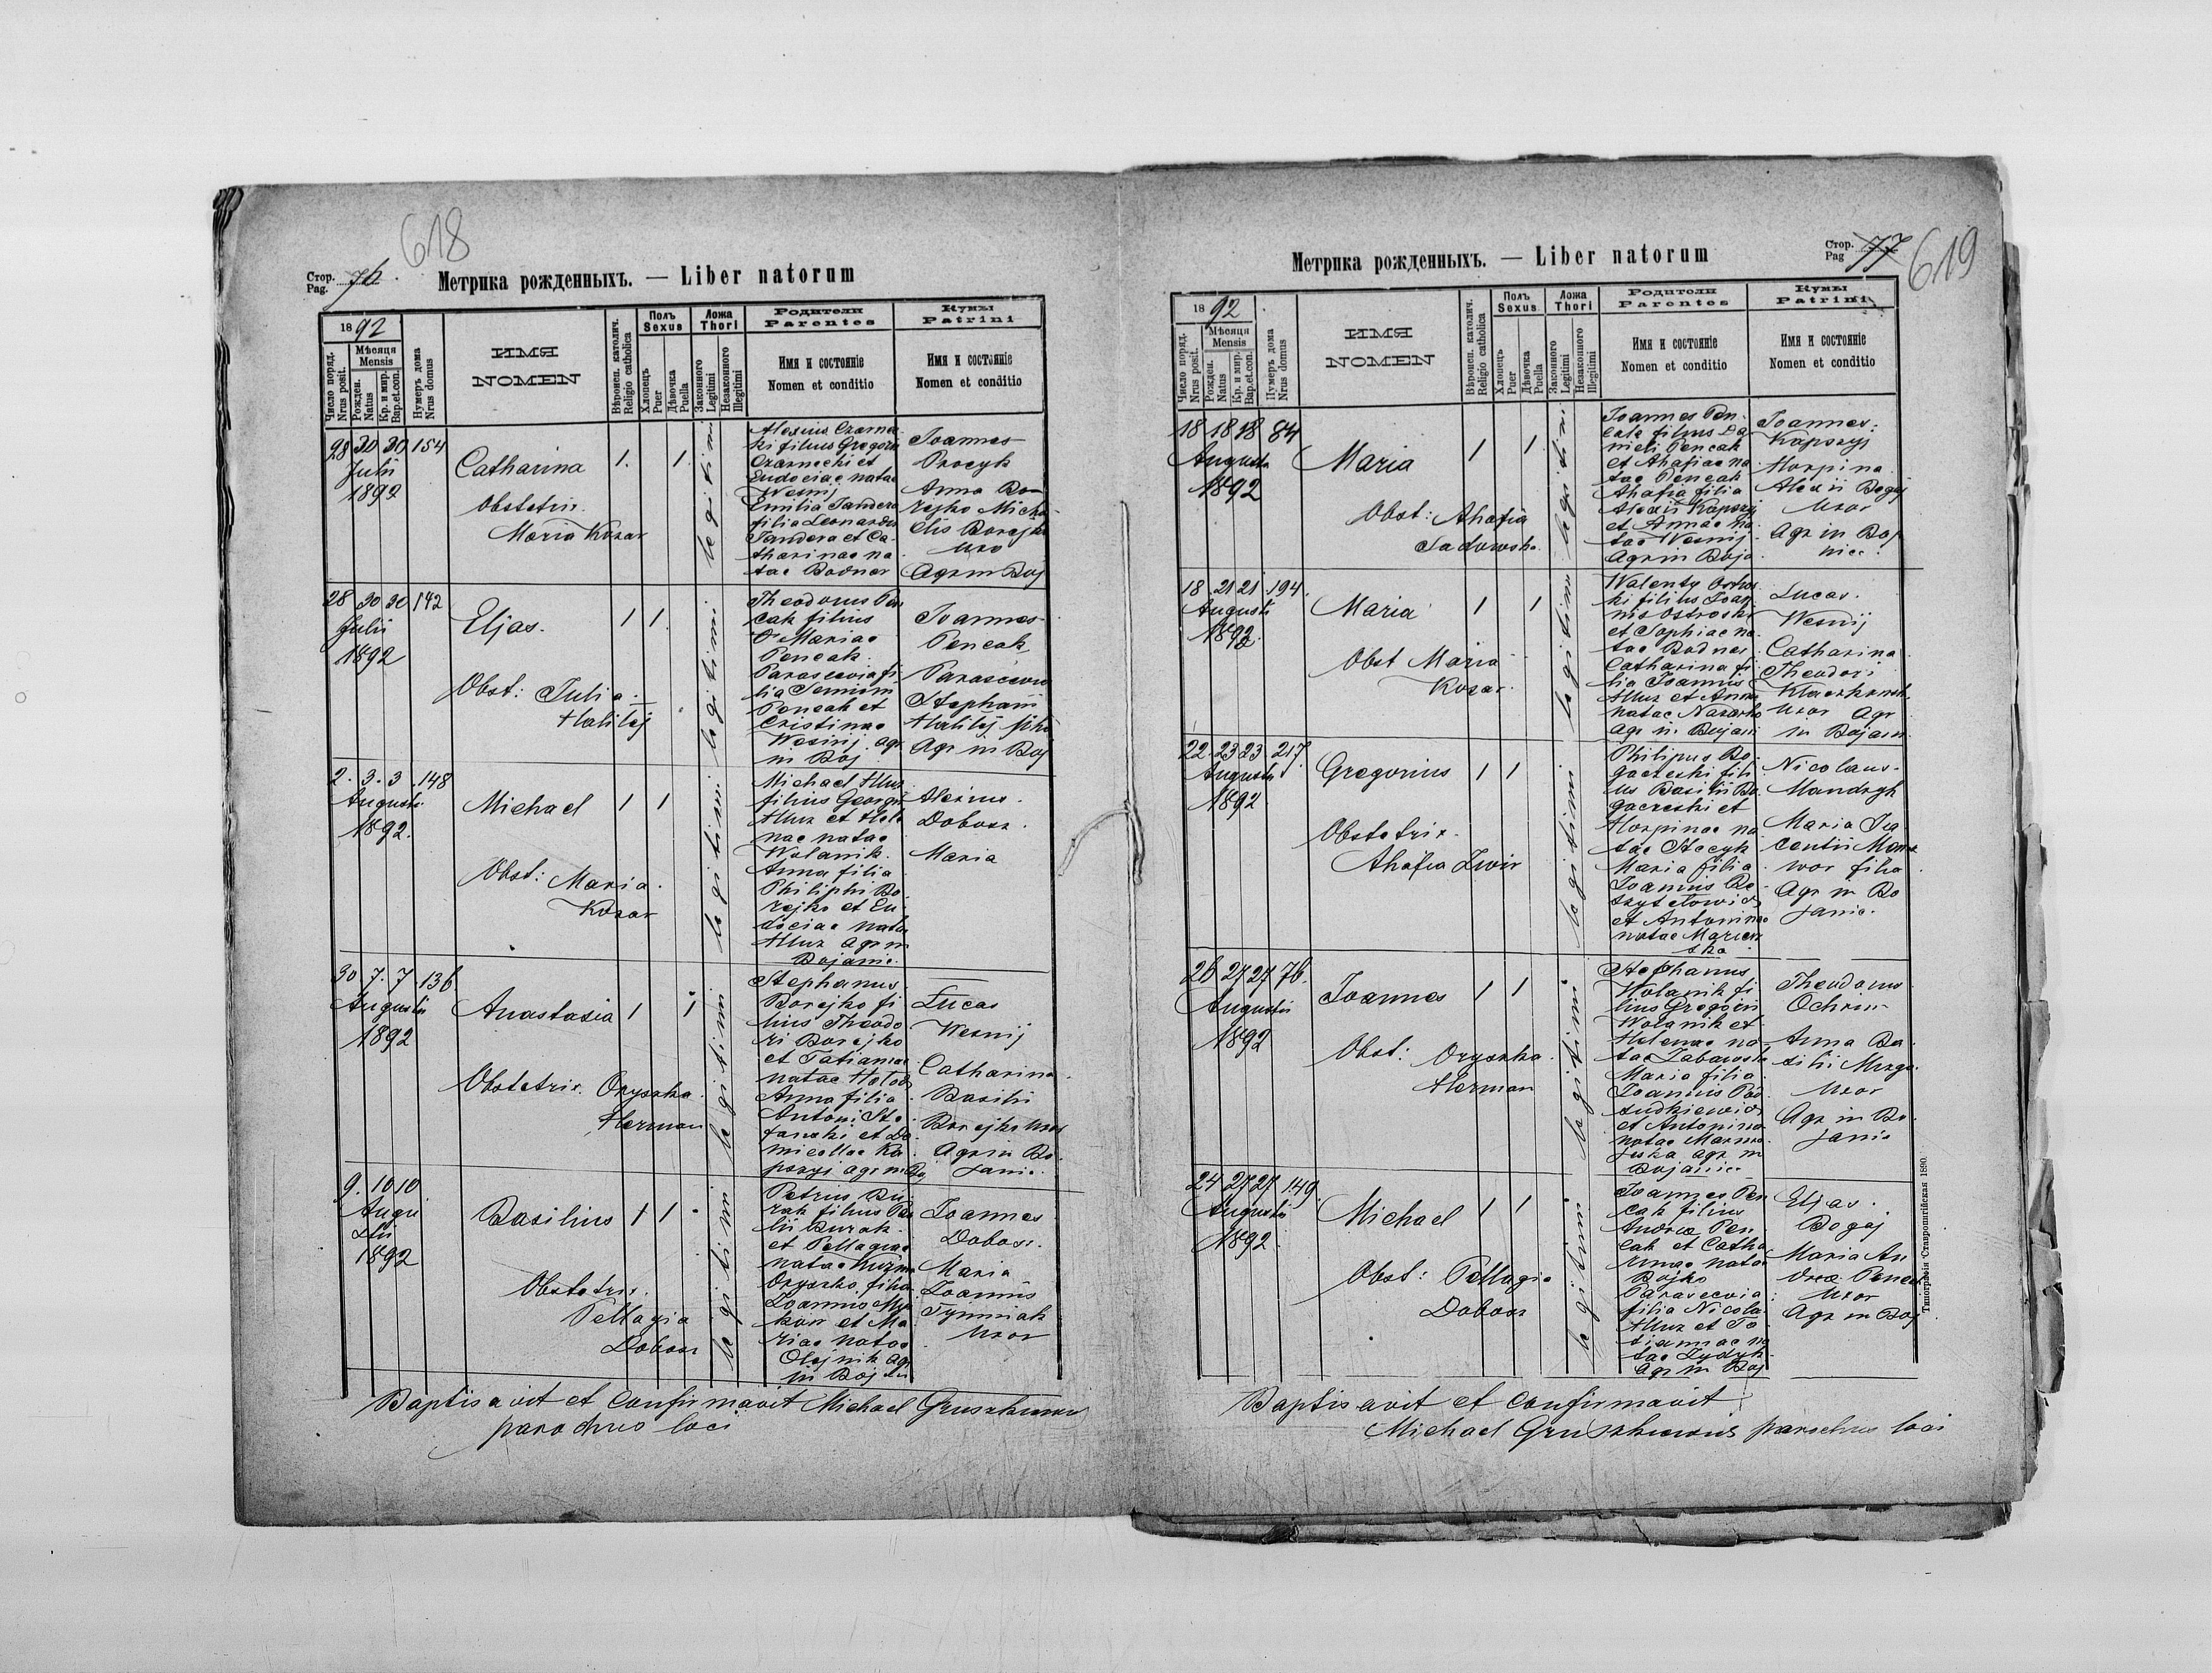 618
Стор.
Pag. 76.
Метрика рожденныхъ. — Liber natorum
1892
Число поряд.
Nrus posit.
Мѣсяця
Mensis
Рожден.
Natus
Кр. и мир.
Bap.et.con.
Нумеръ дома
Nrus domus
ИМЯ
NOMEN
Вѣроисп. католич.
Religio catholica
Полъ
Sexus
Хлопецъ
Puer
Дѣвочка
Puella
Ложа
Thori
Законного
Legitimi
Незаконного
Illegitimi
Родители
Parentes
Имя и состояніе
Nomen et conditio
Кумы
Patrini
Имя и состояніе
Nomen et conditio
28 30 30 154
Julii
1892
Catharina
1. 1
Obstetrix
Maria Kozar
legitimi
Alexius Czarnec
ki filius Gregorii
Czarnecki et
Eudociae natae
Wesnij
Emilia Sandera
filia Leonardi
Sandera et Ca
tharinae na
tae Bodnar
Joannes
Procyk
Anna Bo
rejko Micha
elis Borejko
uxo
Agr in Boj
28 30 30 142
Julii
1892
Eljas.
1 1
Obst: Julia
Halilej
legitimi
Theodorus Pen
cak filius
Mariae
Pencak
Parascevia fi
lia Semion
Pencak et
Cristinae
Wesnij agr
in Boj
Joannes
Pencak
Parascevia
Stephani
Halilej filia
Agr in Boj
2. 3. 3 148
Augusti
1892.
Michael
1 1
Obst: Maria
Kozar
legitimi
Michael Hluz
filius Georgii
Hluz et Hele
nae natae
Wolanik
Anna filia
Philiphi Bo
rejko et Eu
dociae natae
Hluz Agr in
Bojanie.
Alexius
Dobosz.
Maria
30 7. 7 136
Augusti
1892
Anastasia
1 1
Obstetrix. Oryszka
Herman
legitimi
Stephanus
Borejko fi
lius Theodo
ri Borejko
et Tatianae
natae Holod
Anna filia
Antoni Ste
fanski et Do
micellae Ka
pszyj agr in Boj
Lucas
Wesnij
Catharina
Basilii
Borejko uxor
Agr in Bo
janie.
9. 10 10
Augu
sti
1892
Basilius
1 1
Obstetrix.
Pellagia
Dobosz
legitimi
Petrus Bu
rak filius Pau
lii Burak
et Pellagiae
natae Kuzma
Oryszka filia
Joannis
et Ma
riae natae
Olejnik agr
in Boj
Joannes
Dobosz.
Maria
Joannis
Tymniak
uxor
Baptisavit et confirmavit Michael
parochus loci
Стор.
Pag 77
619
Метрика рожденныхъ. — Liber natorum
1892
Число поряд.
Nrus posit.
Мѣсяця
Mensis
Рожден.
Natus
Кр. и мир.
Bap.et.con.
Нумеръ дома
Nrus domus
ИМЯ
NOMEN
Вѣроисп. католич.
Religio catholica
Полъ
Sexus
Хлопецъ
Puer
Дѣвочка
Puella
Ложа
Thori
Законного
Legitimi
Незаконного
Illegitimi
Родители
Parentes
Имя и состояніе
Nomen et conditio
Кумы
Patrini
Имя и состояніе
Nomen et conditio
18 18 18 84
Augusta
1892
Maria
1 1
Obst: Ahafia
Sadowska
legitimi
Joannes Pen
cak filius Da
nieli Pencak
et Ahafiae na
tae Pencak
Ahafia filia
Alexii Kapszyj
et Annae na
tae Wesnij
Agr in Boja
Joannes
Kapszyj
Horpina
Alexii Begaj
Uxor
Agr in Boj
nice.
18 21 21 194.
Augusti
1892.
Maria
1 1
Obst Maria
Kozar.
legitimi
Walenty Ostros
ki filius Joan
nis Ostroski
et Sophiae na
tae Bodnar
Catharina fi
lia Joannis
Hluz et Annae
natae Nazarko
agr in Bojani
Lucas.
Wesnij
Catharina
Theodori
Uxor Agr
in Bojan
22 23 23 217.
Augusti
1892.
Gregorius
1 1
Obstetrix.
Ahafia Zwir
legitimi
Philipus Bo
gaczeski fili
us Basilii Bo
gaczeski et
Horpinae na
tae Stecyk
Maria filia
Joannis
et Antoninae
natae
ska
Nicolaus
Mandzyk
Maria
filia
Agr in Bo
janie.
26 27 27 76.
Augusti
1892
Joannes
1 1
Obst: Oryszka
Herman
legitimi
Stephanus
Wolanik fi
lius Gregorii
Wolanik et
Helenae na
tae Zabawska
Maria filia
Joannis
et Antonina
natae
agr in
Bojanie
Theodorus
Anna Ba
silii
Uxor
Agr in Bo
janie
24 27 27 149.
Augusti
1892.
Michael
1 1
Obst: Pellagia
Dobosz
legitimi
Joannes Pen
cak filius
Andreae Pen
cak et Catha
rinae natae
Bojko
Parascevia
filia Nicolai
Hluz et Ta
tiannae na
tae Dydyk
Agr in Boj
Eljas
Begaj
Maria An
dreae Pencak
Uxor
Agr in Boj
Типографія Ставропигійская 1890.
Baptisavit et confirmavit
Michael parochus loci